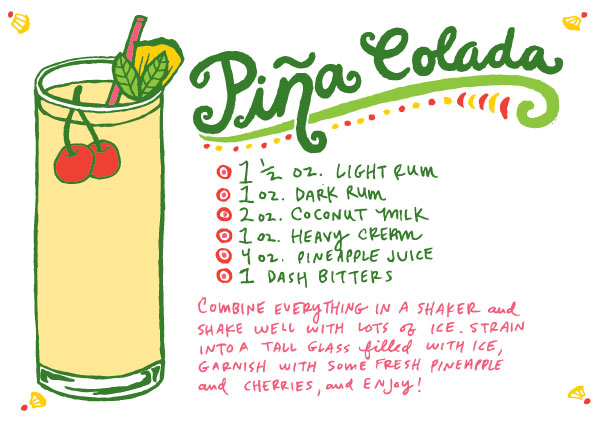 Piña Colada
1 1/2 oz. LIGHT RUM
1 oz. DARK RUM
2 oz. COCONUT MILK
1 oz. HEAVY CREAM
4 oz. PINEAPPLE JUICE
1 DASH BITTERS
COMBINE EVERYTHING IN A SHAKER and
SHAKE WELL WITH LOTS of ICE. STRAIN
INTO A TALL GLASS filled WITH ICE,
GARNISH WITH SOME FRESH PINEAPPLE
and CHERRIES, and ENJOY!